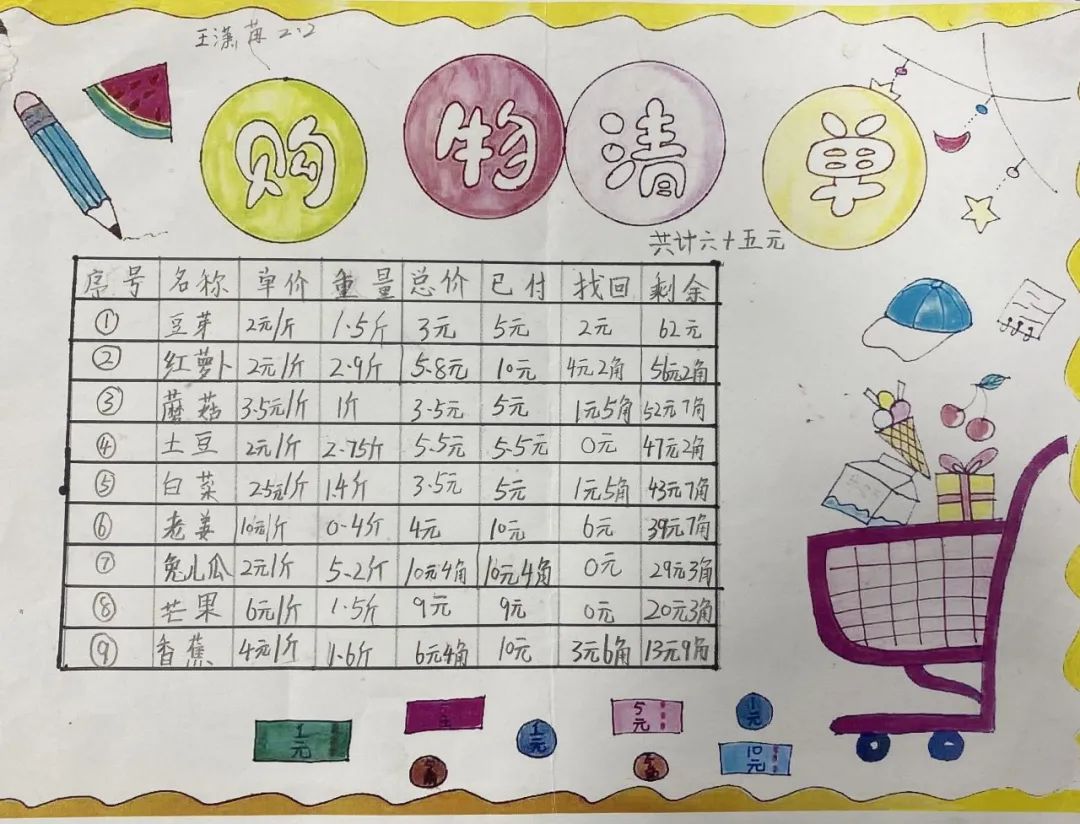 王潇苒 2.2
购物清单
共计六十五元
序号 名称 单价 重量 总价 已付 找回 剩余
① 豆芽 2元/斤 1.5斤 3元 5元 2元 62元
② 红萝卜 2元/斤 2.9斤 5.8元 10元 4元2角 56元2角
③ 蘑菇 3.5元/斤 1斤 3.5元 5元 1元5角 52元7角
④ 土豆 2元/斤 2.75斤 5.5元 5.5元 0元 47元2角
⑤ 白菜 2.5元/斤 1.4斤 3.5元 5元 1元5角 43元7角
⑥ 老姜 10元/斤 0.4斤 4元 10元 6元 39元7角
⑦ 兔儿瓜 2元/斤 5.2斤 10元4角 10元4角 0元 29元3角
⑧ 芒果 6元/斤 1.5斤 9元 9元 0元 20元3角
⑨ 香蕉 4元/斤 1.6斤 6元4角 10元 3元6角 13元9角
1元
1元
5元
1元
10元
5角